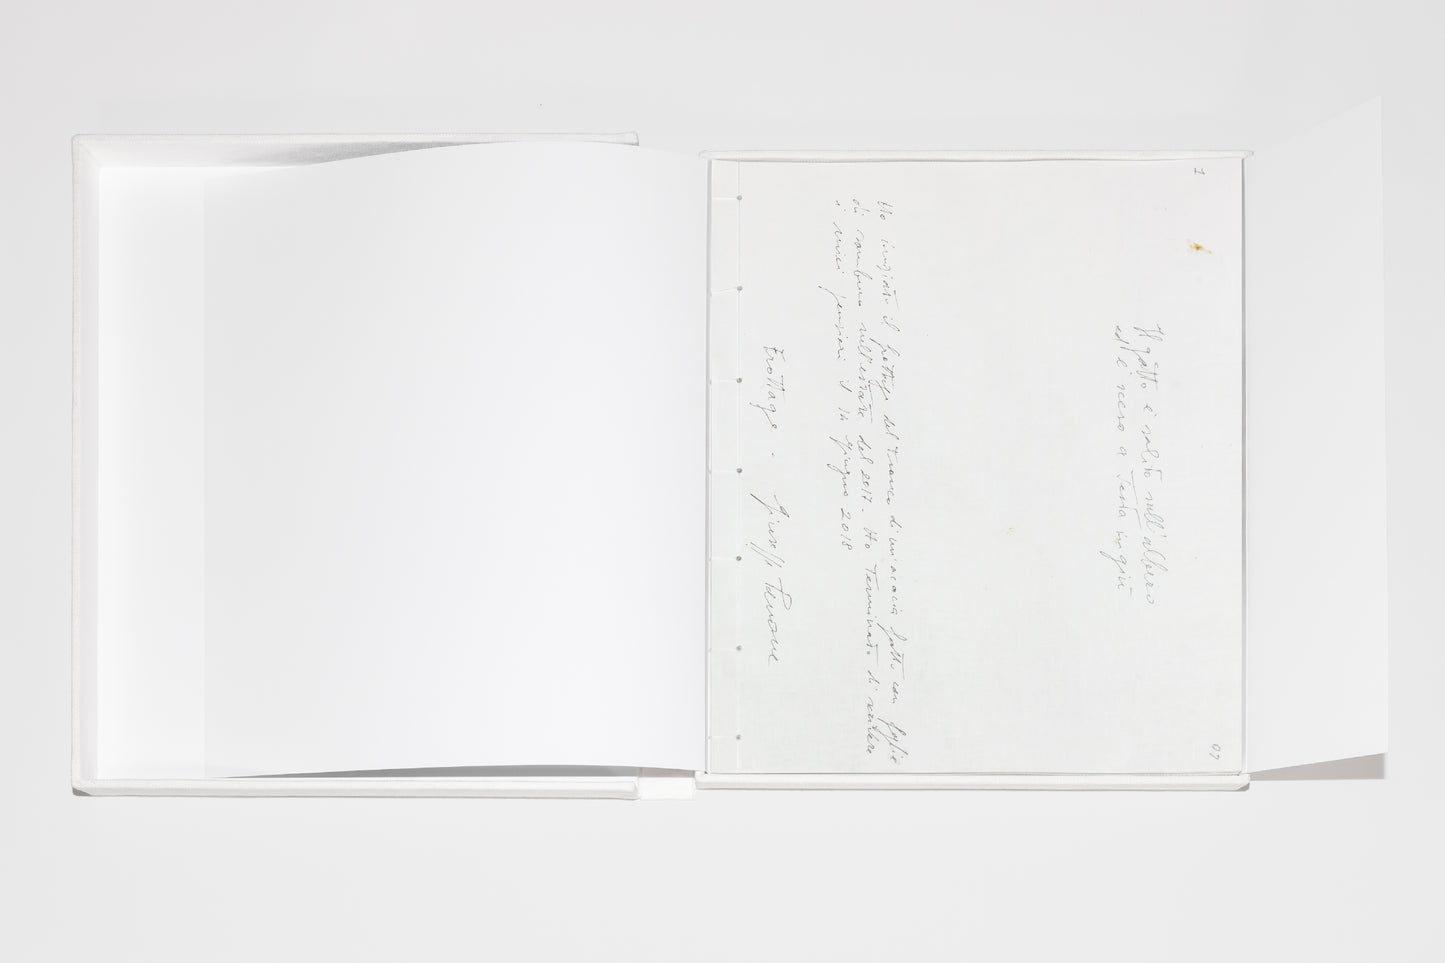 1
Il gatto è salito sull'albero
ed è sceso a testa in giù
Ho iniziato il frottage del tronco di un'acacia fatto con foglie
di sambuco nell'estate del 2017. Ho terminato di scrivere
i miei pensieri il in giugno 2018
Frottage - Giuseppe Penone
07